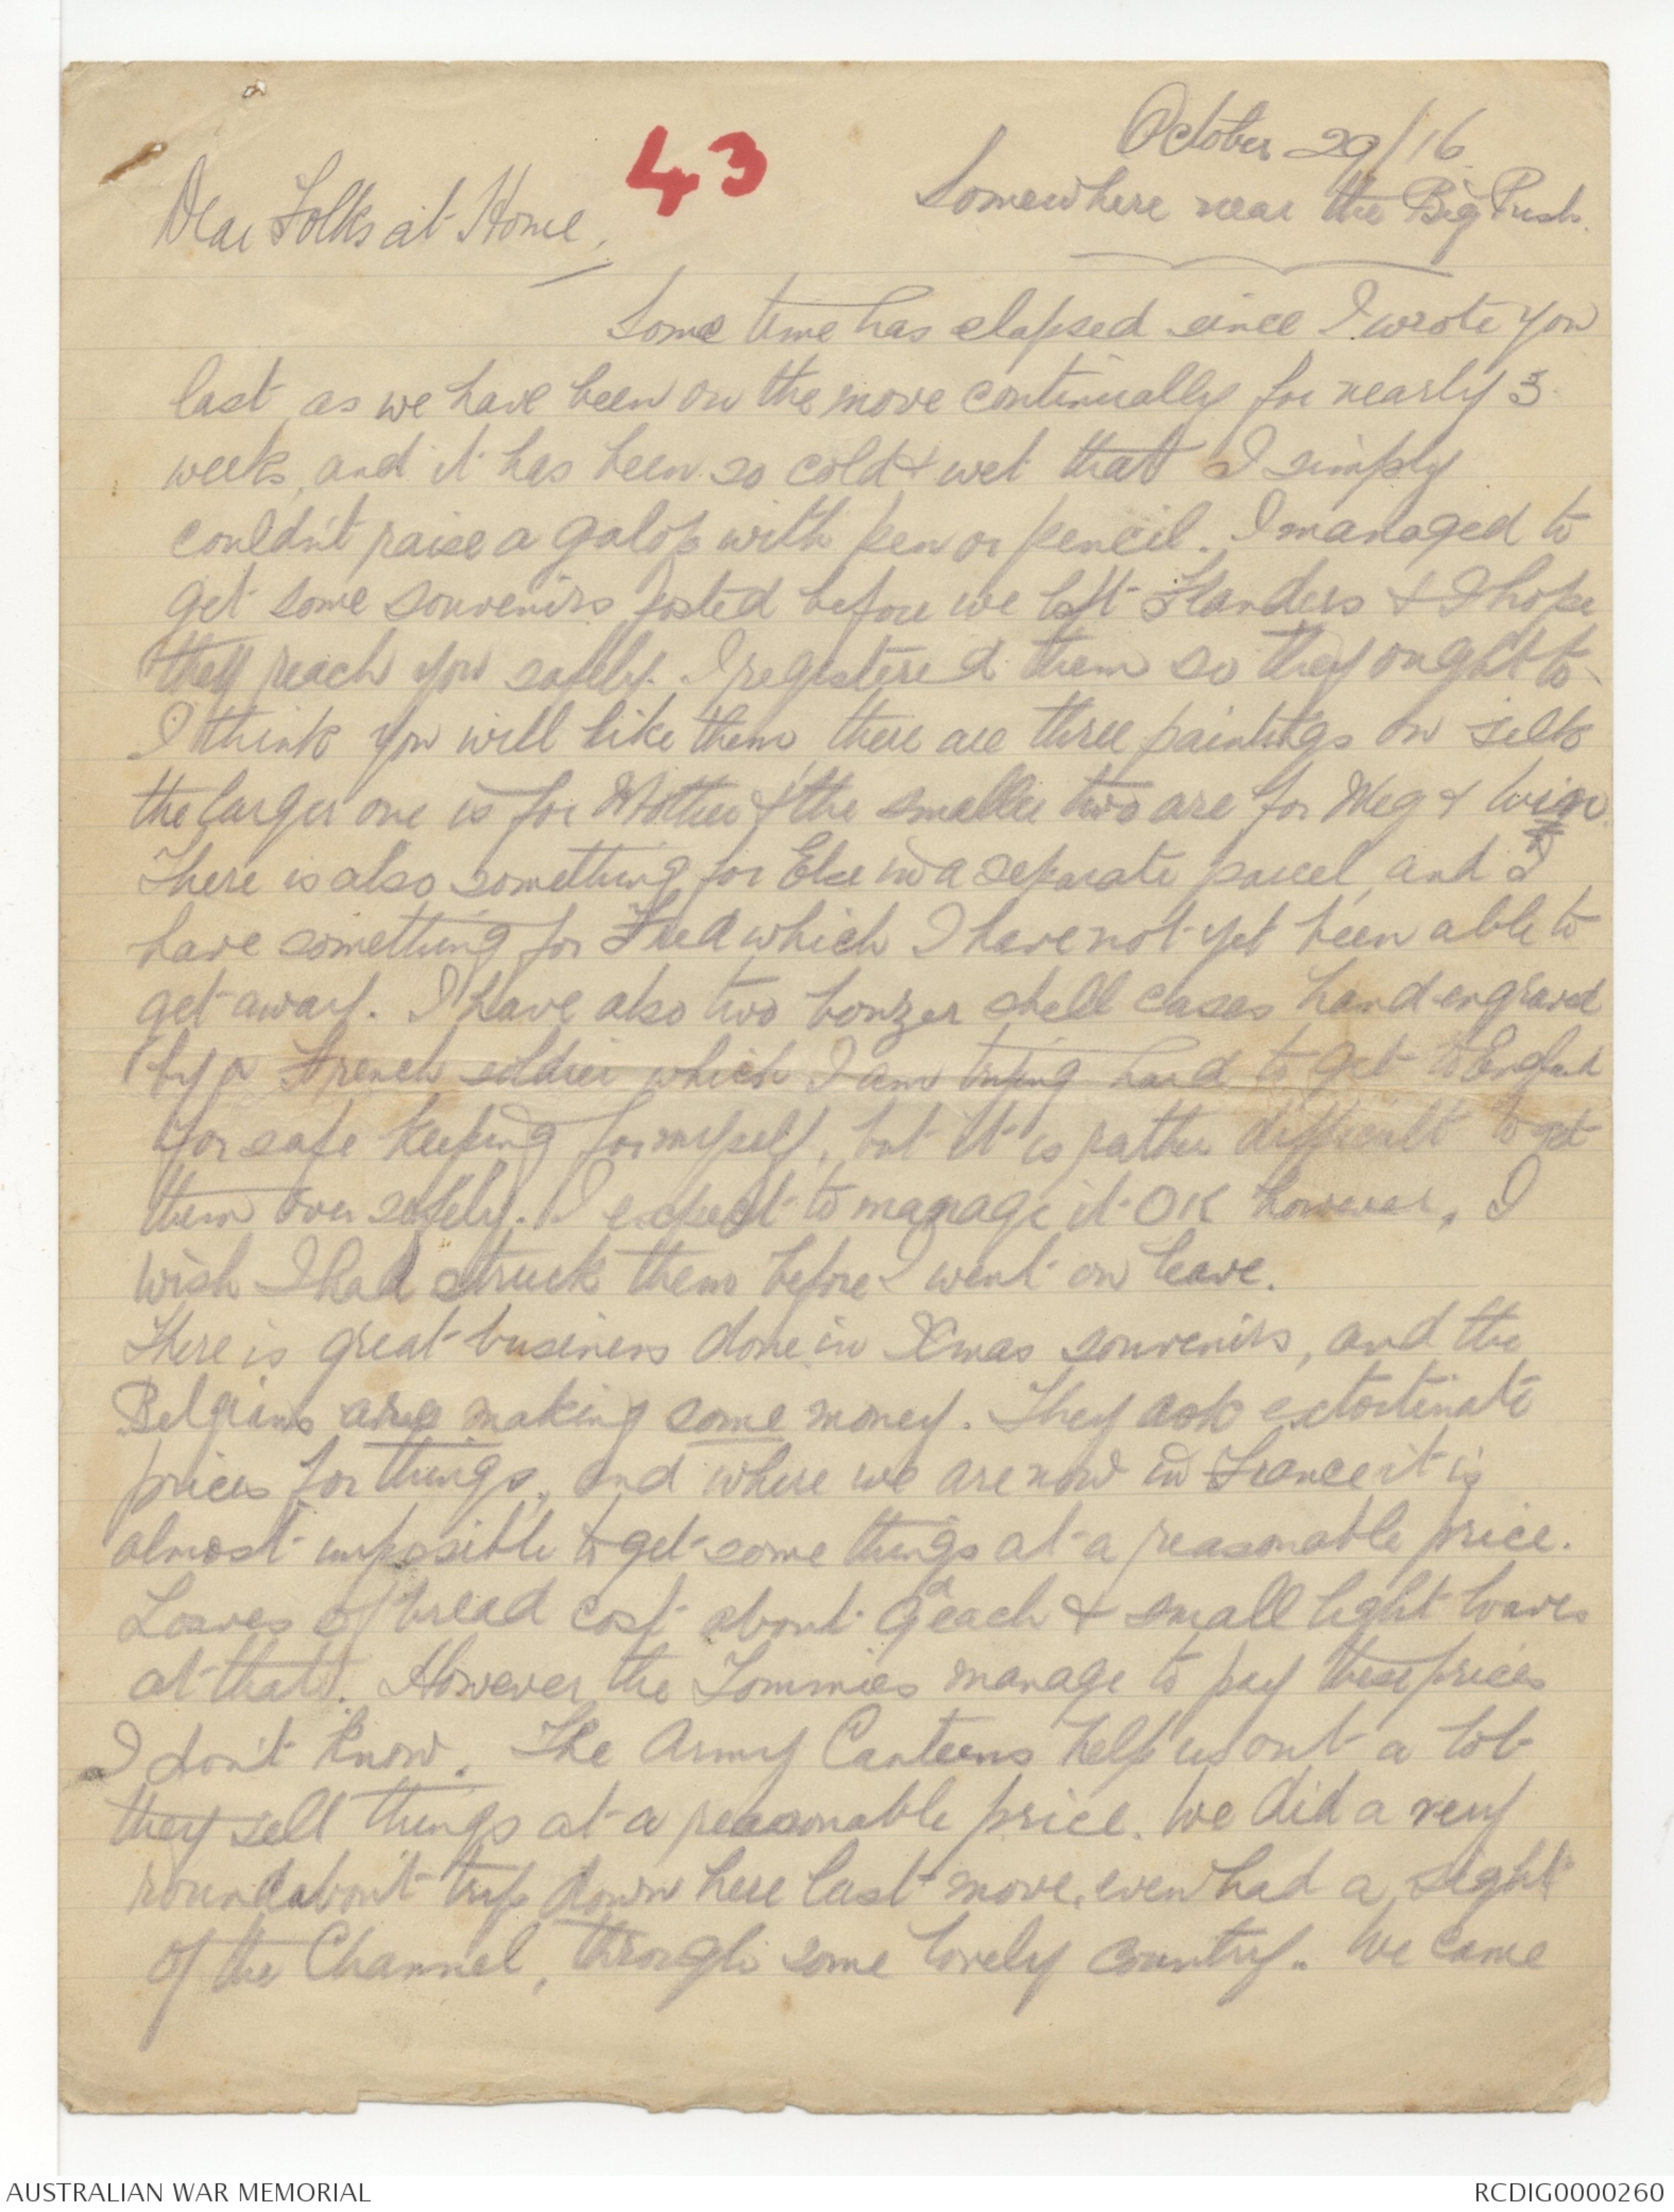 43
October 29/16
Somewhere near the Big Push.
Dear Folks at Home,
Some time has elapsed since I wrote you
last, as we have been on the move continually for nearly 3
weeks, and it has been so cold & wet that I simply
couldn't raise a galop with pen or pencil. I managed to
get some souvenirs posted before we left Flanders & I hope
they reach you safely. I registered them so they ought to
I think you will like them, there are three paintings on silk
the larger one is for Mother & the smaller two are for Meg & Win.
There is also something for Else in a separate parcel, and I
have something for Fred which I have not yet been able to
get away. I have also two bonzer shell cases hand engraved
by a French soldier which I am trying hard to get to England
for safe keeping for myself, but it is rather difficult to get
them over safely. I expect to manage it OK however, I
wish I had struck them before I went on leave.
There is great business done in Xmas souvenirs, and the
Belgians are making some money. They ask extortinate
prices for things, and where we are now in France it is
almost impossible to get some things at a reasonable price.
Loaves of bread cost about 9d each & small light loaves
at that. However the Tommies manage to pay these prices
I don't know. The Army Canteens help us out a lot
they sell things at a reasonable price. We did a very
roundabout trip down here last move, even had a sight
of the Channel, through some lovely country.. We came
AUSTRALIAN WAR MEMORIAL
RCDIG0000260